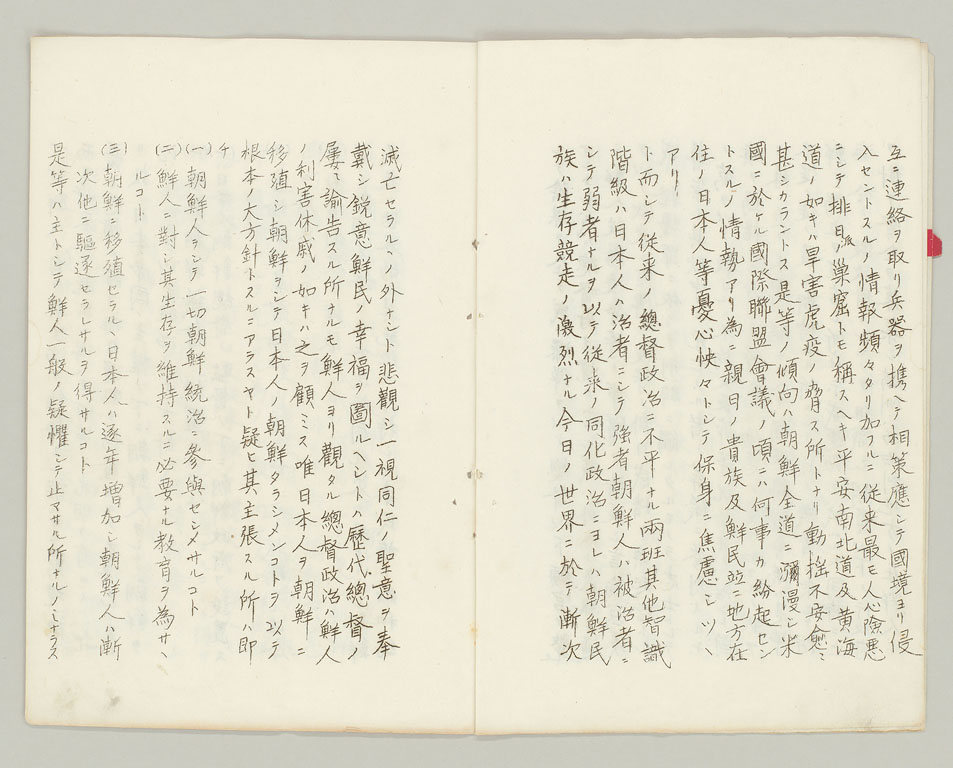 互ニ連絡ヲ取リ兵器ヲ携ヘテ相策應シテ國境ヨリ侵
入セントスルノ情報頻々タリ加フルニ従来最モ人心險悪
ニシテ排日派ノ巣窟トモ稱スヘキ平安南北道及黄海
道ノ如キハ旱害虎疫ノ脅ス所トナリ動揺不安愈々
甚シカラントス是等ノ傾向ハ朝鮮全道ニ瀰漫シ米
國ニ於ケル國際聯盟會議ノ頃ニハ何事カ紛起セン
トスルノ情勢アリ為ニ親日ノ貴族及鮮民竝ニ地方在
住ノ日本人等憂心怏々トシテ保身ニ焦慮シツヽ
アリ
ト而シテ従来ノ總督政治ニ不平ナル兩班其他智識
階級ハ日本人ハ治者ニシテ強者朝鮮人ハ被治者ニ
シテ弱者ナルヲ以テ従来ノ同化政治ニヨレハ朝鮮民
族ハ生存競走ノ激烈ナル今日ノ世界ニ於テ漸次
滅亡セラルヽノ外ナシト悲觀シ一視同仁ノ聖意ヲ奉
戴シ鋭意鮮民ノ幸福ヲ圖ルヘシトハ歴代總督ノ
屡々諭告スル所ナルモ鮮人ヨリ觀タル總督政治ハ鮮人
ノ利害休戚ノ如キハ之ヲ顧ミス唯日本人ヲ朝鮮ニ
移殖シ朝鮮ヲシテ日本人ノ朝鮮タラシメンコトヲ以テ
根本ノ大方針トスルニアラスヤト疑ヒ其主張スル所ハ即
チ
(一)朝鮮人ヲシテ一切朝鮮統治ニ參與センメサルコト
(二)鮮人ニ對シ其生存ヲ維持スルニ必要ナル教育ヲ為サヽ
ルコト
(三)朝鮮ニ移殖セラルヽ日本人ハ逐年増加シ朝鮮人ハ漸
次他ニ驅逐セラレサルヲ得サルコト
是等ハ主トシテ鮮人一般ノ疑懼シテ止マサル所ナルノミナラス